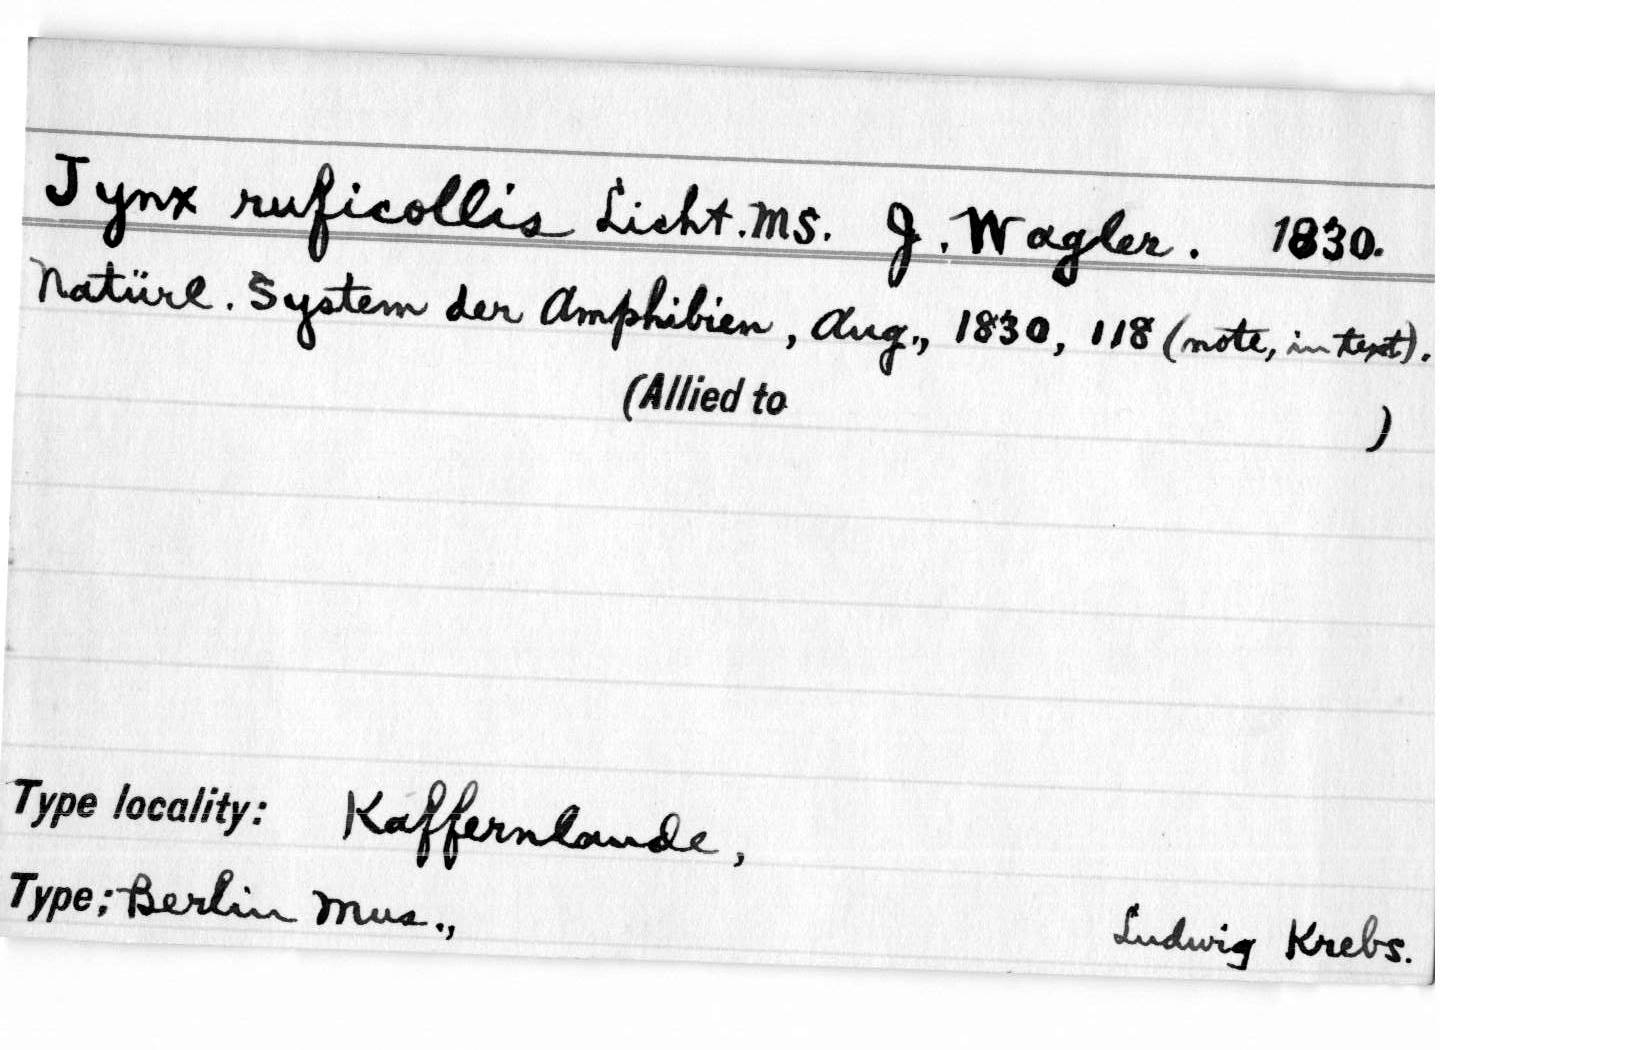 Jynx ruficollis Licht. MS. J. Wagler. 1830.
Natürl. System der Amphibien, Aug., 1830, 118 (note, in text).
(Allied to )
Type locality: Kaffernlande,
Type; Berlin Mus., Ludwig Krebs.